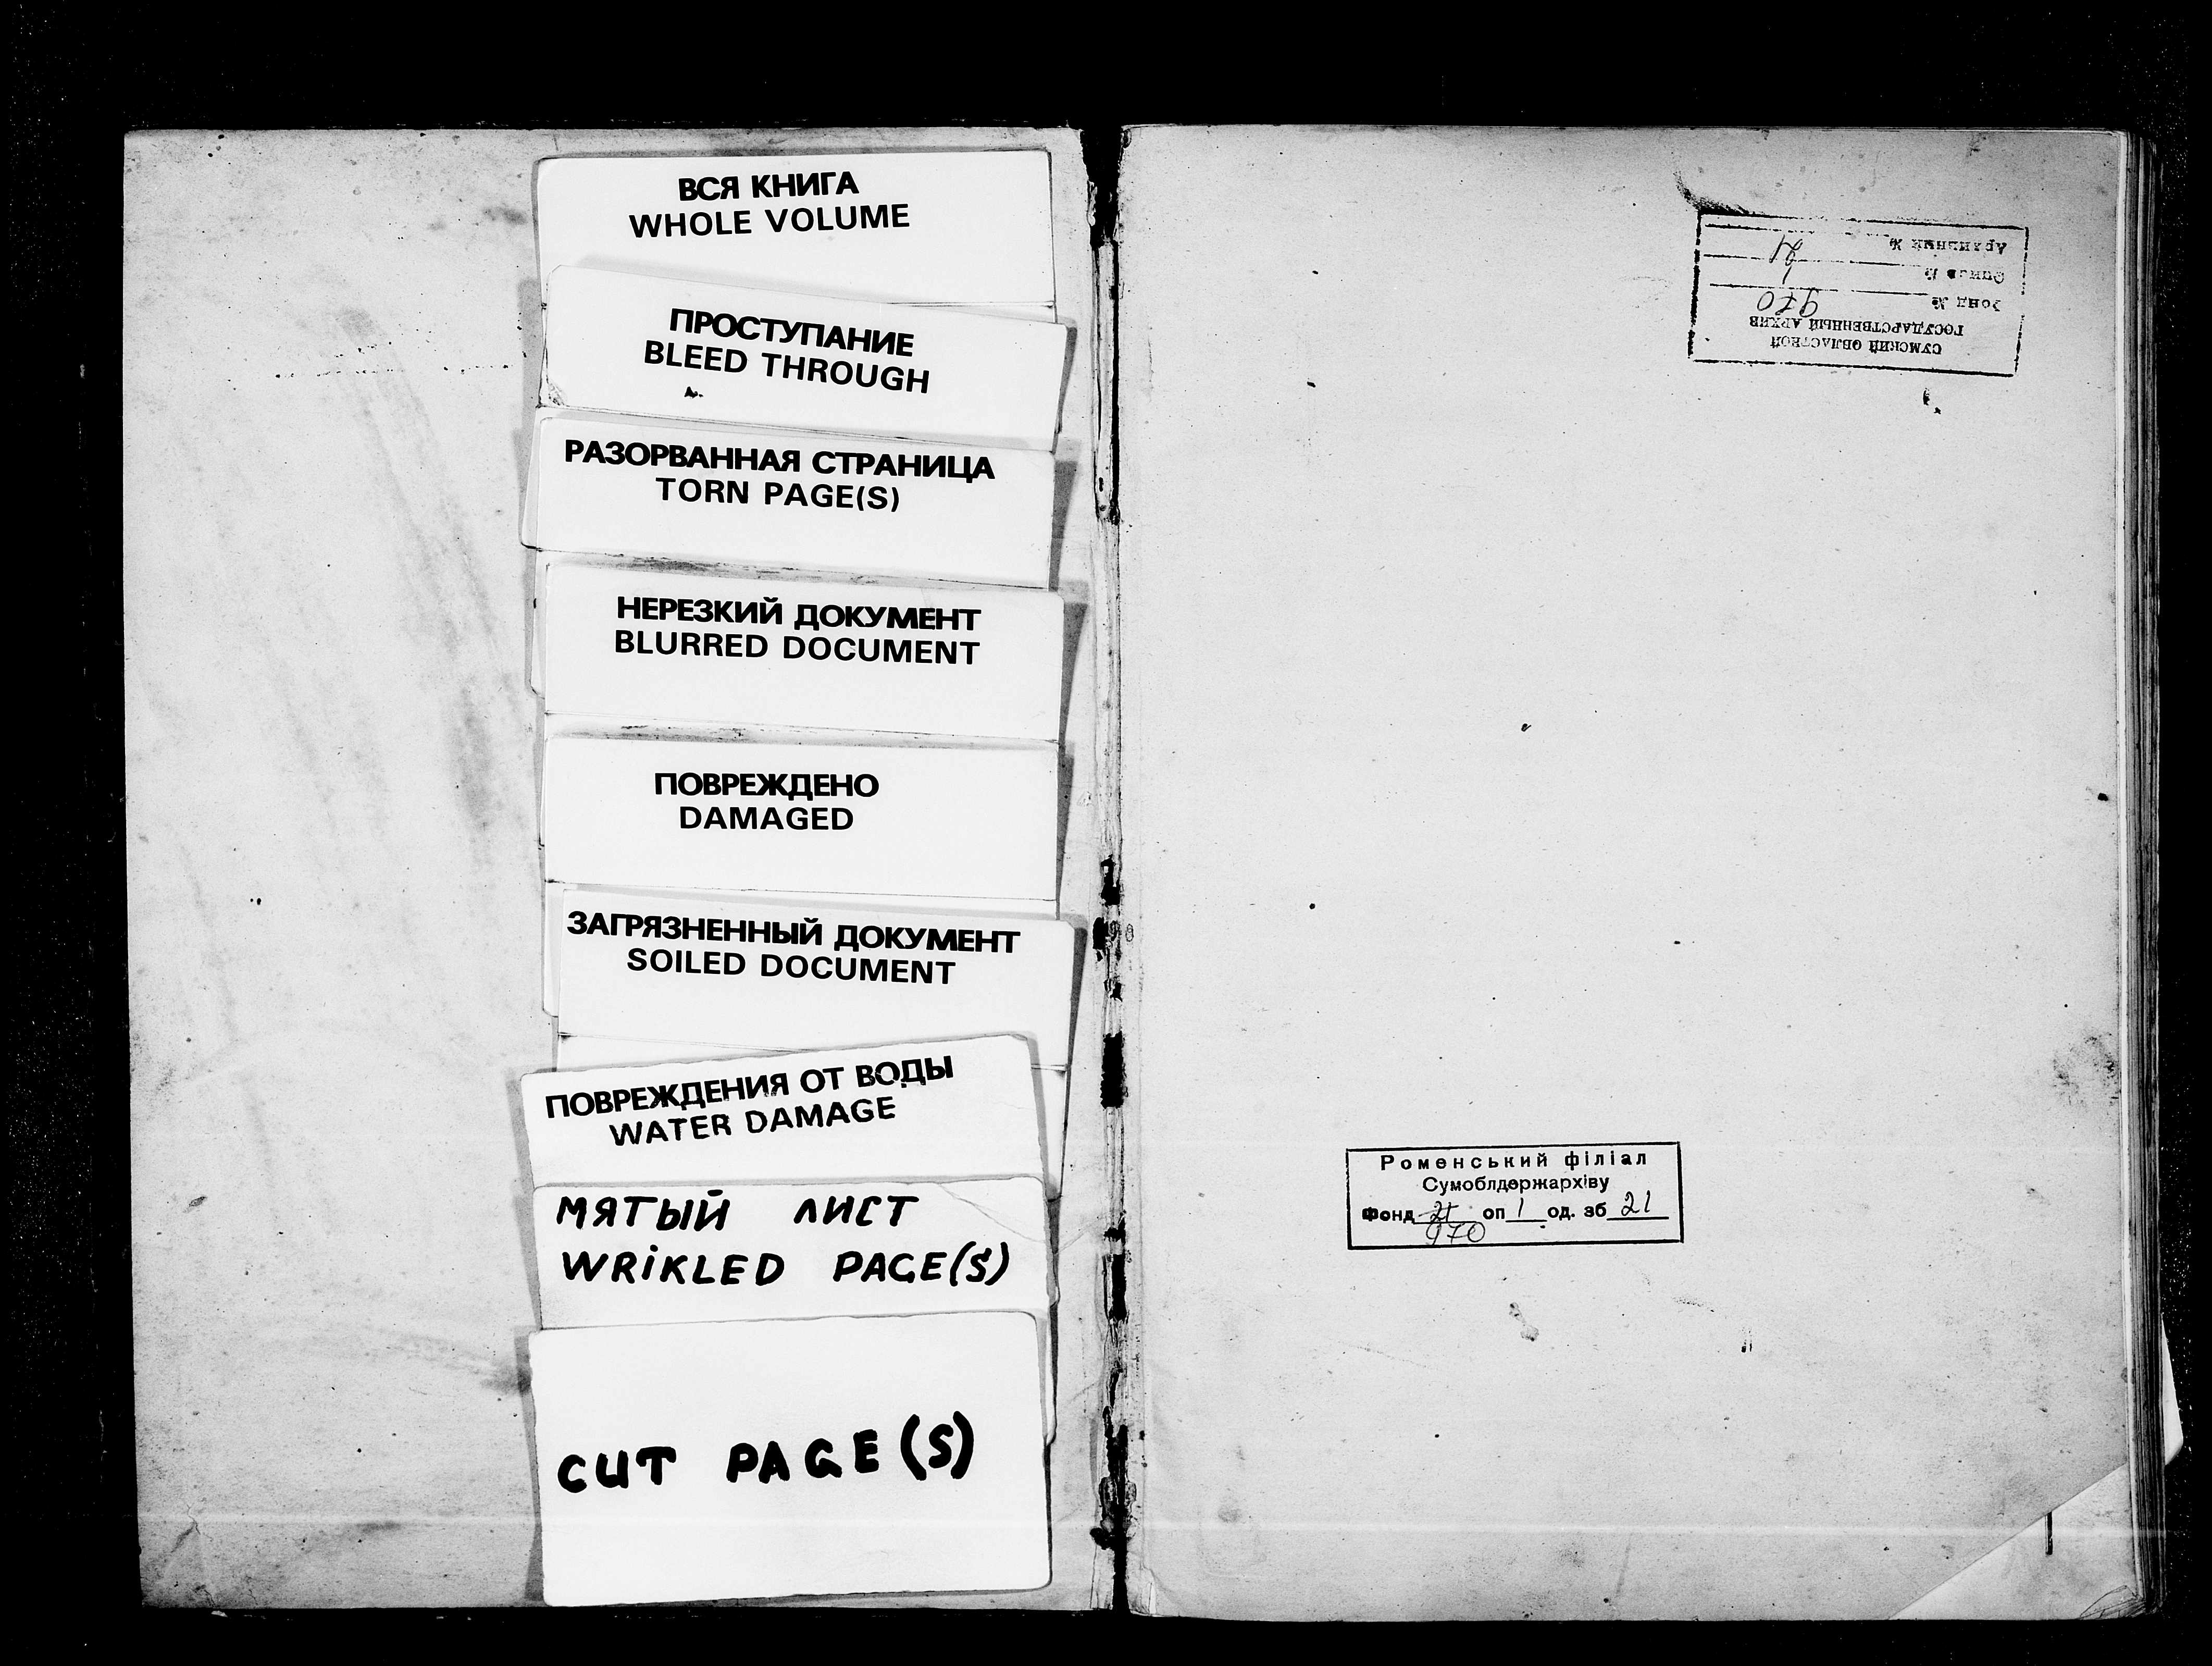 ВСЯ КНИГА
WHOLE VOLUME
ПРОСТУПАНИЕ
BLEED THROUGH
РАЗОРВАННАЯ СТРАНИЦА
TORN PAGE(S)
НЕРЕЗКИЙ ДОКУМЕНТ
BLURRED DOCUMENT
ПОВРЕЖДЕНО
DAMAGED
ЗАГРЯЗНЕННЫЙ ДОКУМЕНТ
SOILED DOCUMENT
ПОВРЕЖДЕНИЯ ОТ ВОДЫ
WATER DAMAGE
МЯТЫЙ ЛИСТ
WRIKLED PAGE(S)
CUT PAGE(S)
СУМСКИЙ ОБЛАСТНОЙ
ГОСУДАРСТВЕННЫЙ АРХИВ
Фонд № 970
Опись № 1
Архивный № 21
Роменський філіал
Сумоблдержархіву
Фонд 21 оп 1 од. зб 21
970